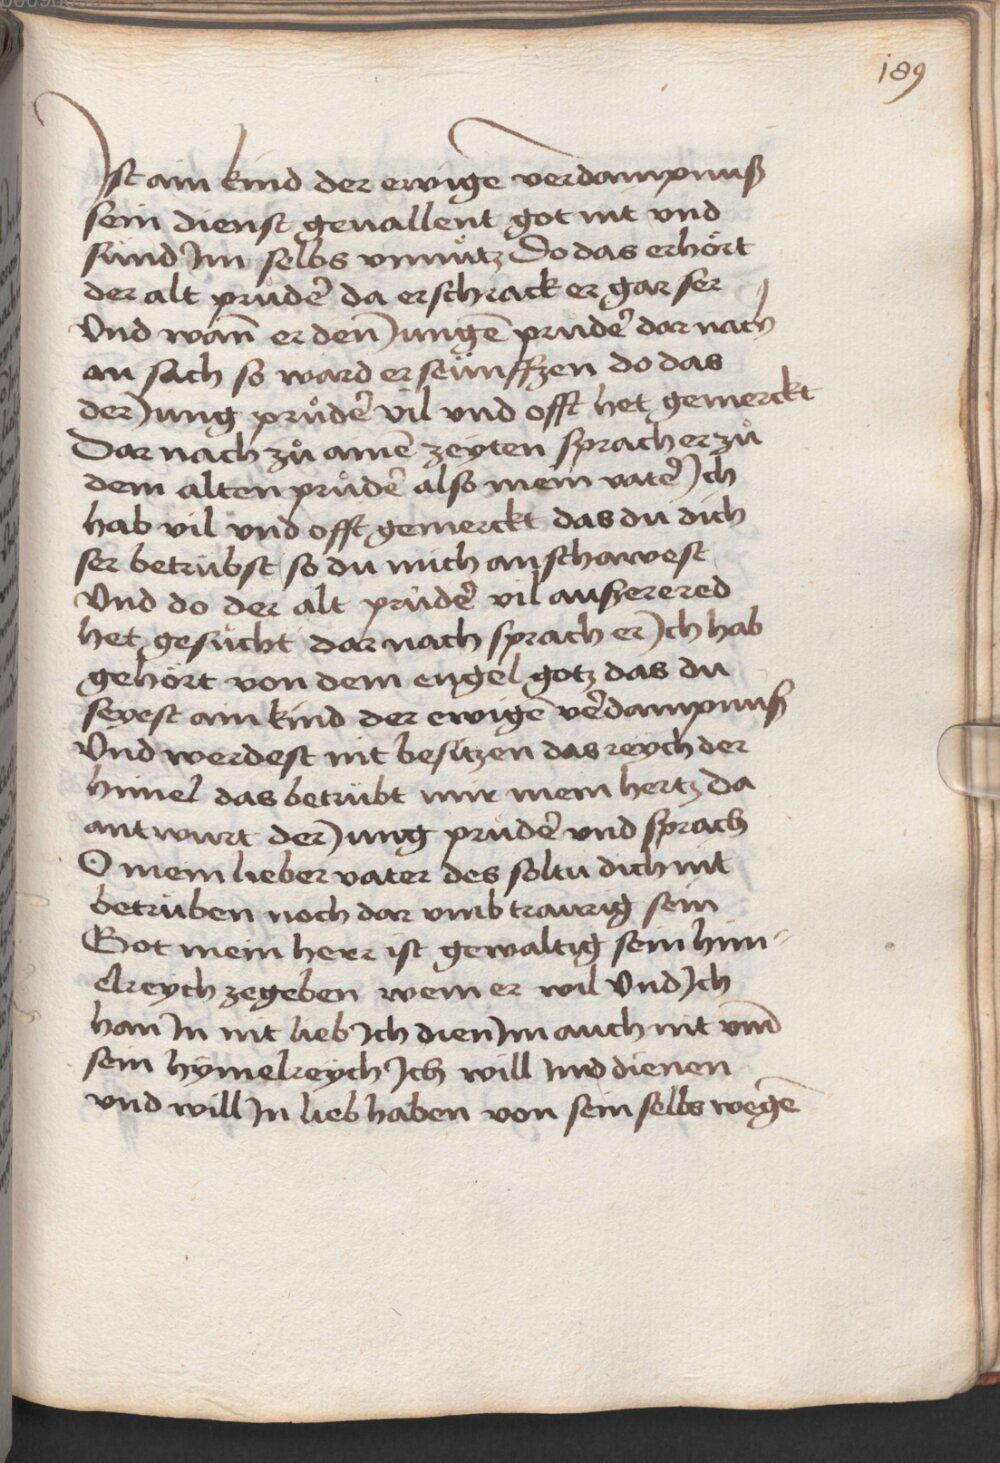 189
Ist ain kind der ewigē verdampnuß
sein dienst geuallent got nit vnd
sind Im selbs vnnütz Do das erhört
der alt průdẽ da erschrack er gar ser
Vnd wañ er den Jungē prudẽ dar nach
an sach so ward er seüinfftzen do das
der Jung průdẽ vil vnd offt het gemerckt
Dar nach zů ainē zeyten sprach er zů
dem alten průdẽ also mein vatẽ Ich
hab vil vnd offt gemerckt das du dich
ser betrübst so du mich anschawest
Vnd do der alt průdẽ vil außerered
het gesůcht dar nach sprach er Ich hab
gehört von dem engel gotz das du
seyest ain kind der ewigē vẽdampnuß
Vnd werdest nit besitzen das reych der
himel das betrübt mir mein hertz da
antwurt der Jung průdẽ vnd sprach
O mein lieber vater des soltu dich nit
betrüben noch dar vmb traurig sein
Got mein herr ist gewaltig sein him-
elreych zegeben wem er wil Vnd Ich
han In nit lieb Ich dien Im auch nit vm̄
sein hÿmelreych Ich will Im dienen
vnd will In lieb haben von sein selbs wegē